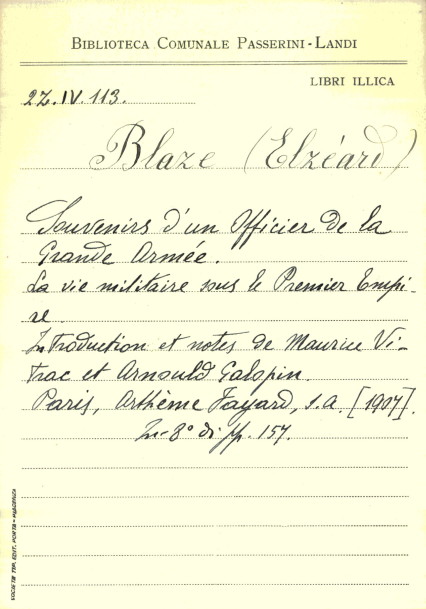 BIBLIOTECA COMUNALE PASSERINI-LANDI
LIBRI ILLICA
2Z.IV.113.
Blaze (Elzéard)
Souvenirs d'un Officier de la
Grande Armée.
La vie militaire sous le Premier Empi-
re.
Introduction et notes de Maurice Vi-
trac et Arnould Galopin.
Paris, Arthème Fayard, s.a. [1907].
In-8° di pp. 157.
SOCIETÀ TIP. EDIT. PORTA - PIACENZA